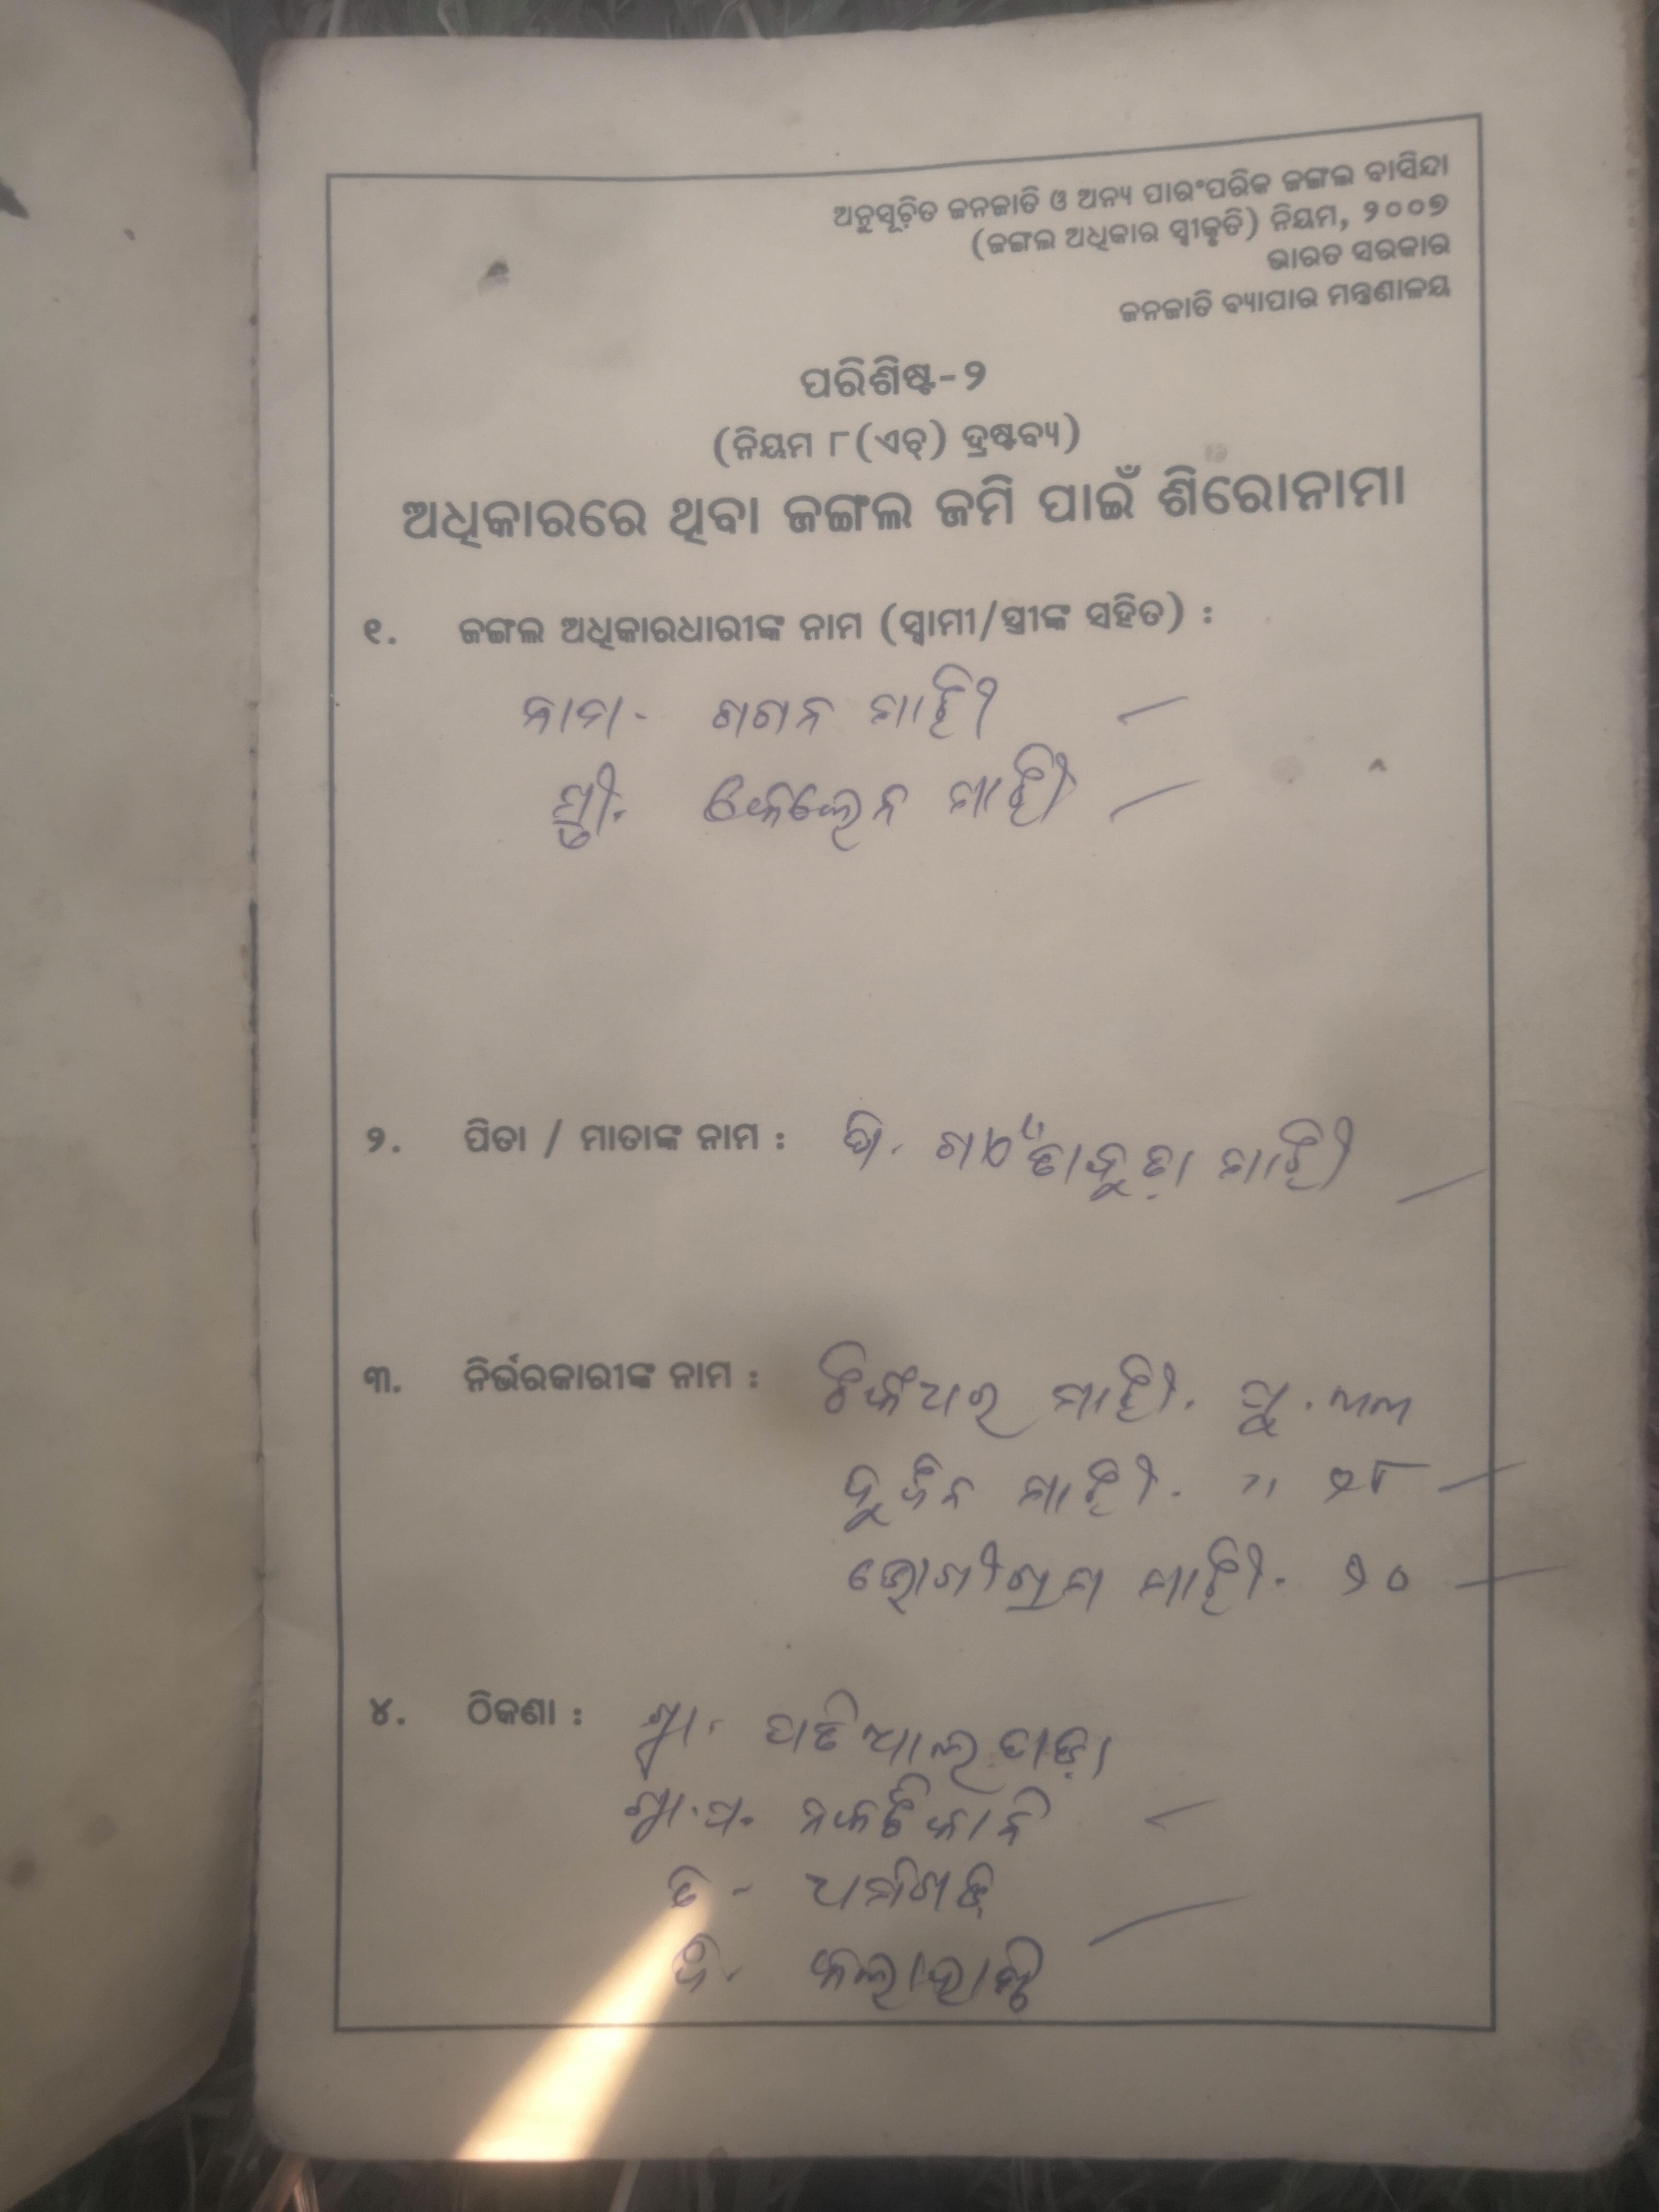 ଅନୁସୂଚିତ ଜନଜାତି ଓ ଅନ୍ୟ ପାରଂପରିକ ଜଙ୍ଗଲ ବାସିନ୍ଦା
(ଜଙ୍ଗଲ ଅଧିକାର ସ୍ୱୀକୃତି) ନିୟମ, ୨୦୦୭
ଭାରତ ସରକାର
ଜନଜାତି ବ୍ୟାପାର ମନ୍ତ୍ରଣାଳୟ
ପରିଶିଷ୍ଟ-୨
(ନିୟମ ୮(ଏଚ୍) ଦ୍ରଷ୍ଟବ୍ୟ)
ଅଧିକାରରେ ଥିବା ଜଙ୍ଗଲ ଜମି ପାଇଁ ଶିରୋନାମା
୧. ଜଙ୍ଗଲ ଅଧିକାରଧାରୀଙ୍କ ନାମ (ସ୍ୱାମୀ/ସ୍ତ୍ରୀଙ୍କ ସହିତ) :
ନାମ- ଗଗନ ମାଝି
ସ୍ତ୍ରୀ. ମାଝି
୨. ପିତା / ମାତାଙ୍କ ନାମ : ପି. ମାଝି
୩. ନିର୍ଭରକାରୀଙ୍କ ନାମ : ମାଝି. ପୁ.
ମାଝି. " ୨୮
ମାଝି. ୨୦
୪. ଠିକଣା : ଗ୍ରା. ପଟିଆଲପାଡ଼ା
ଗ୍ରା.ପ. ନକଟିକାନି
ଜି. କଳାହାଣ୍ଡି